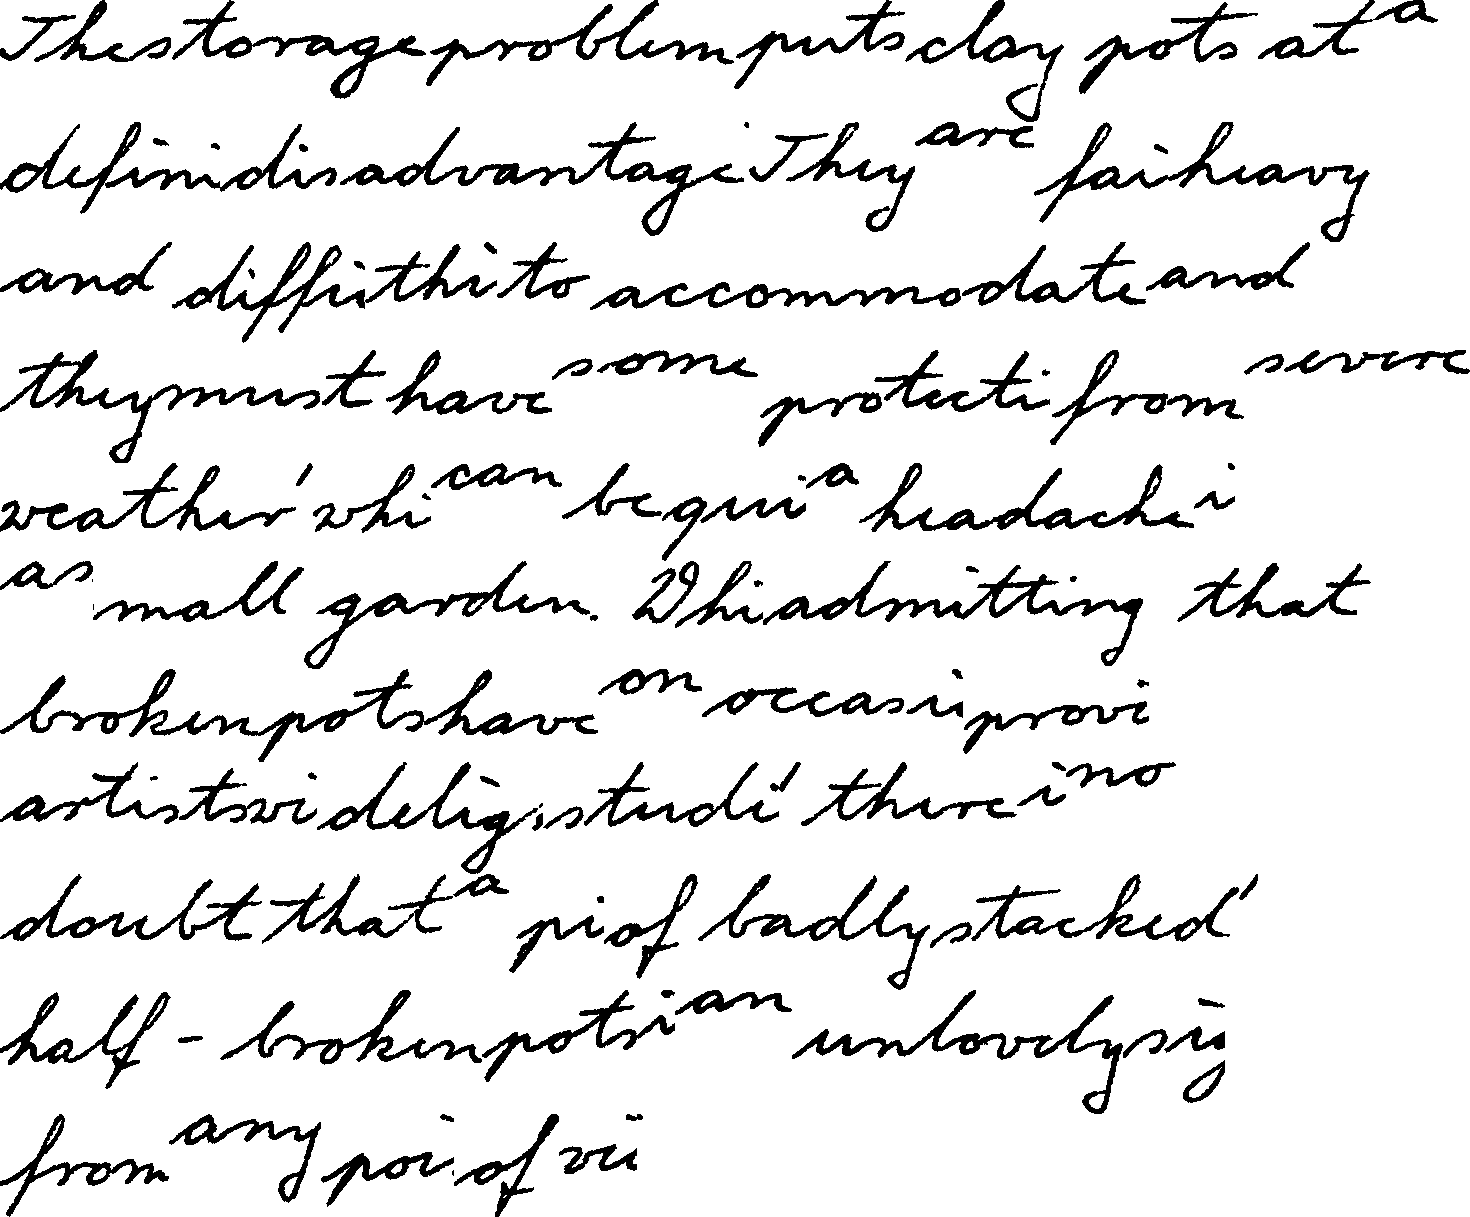 The storage problem puts clay pots at a
defini disadvantage They are fai heavy
and diffi thi to accommodate and
they must have some protecti from severe
weather' whi can be qui a headache i
a small garden. Whi admitting that
broken pots have on occasi provi
artists wi delig, studi" there i no
doubt that a pi of badly stacked'
half - broken pots i an unlovely sig
from any poi of vi